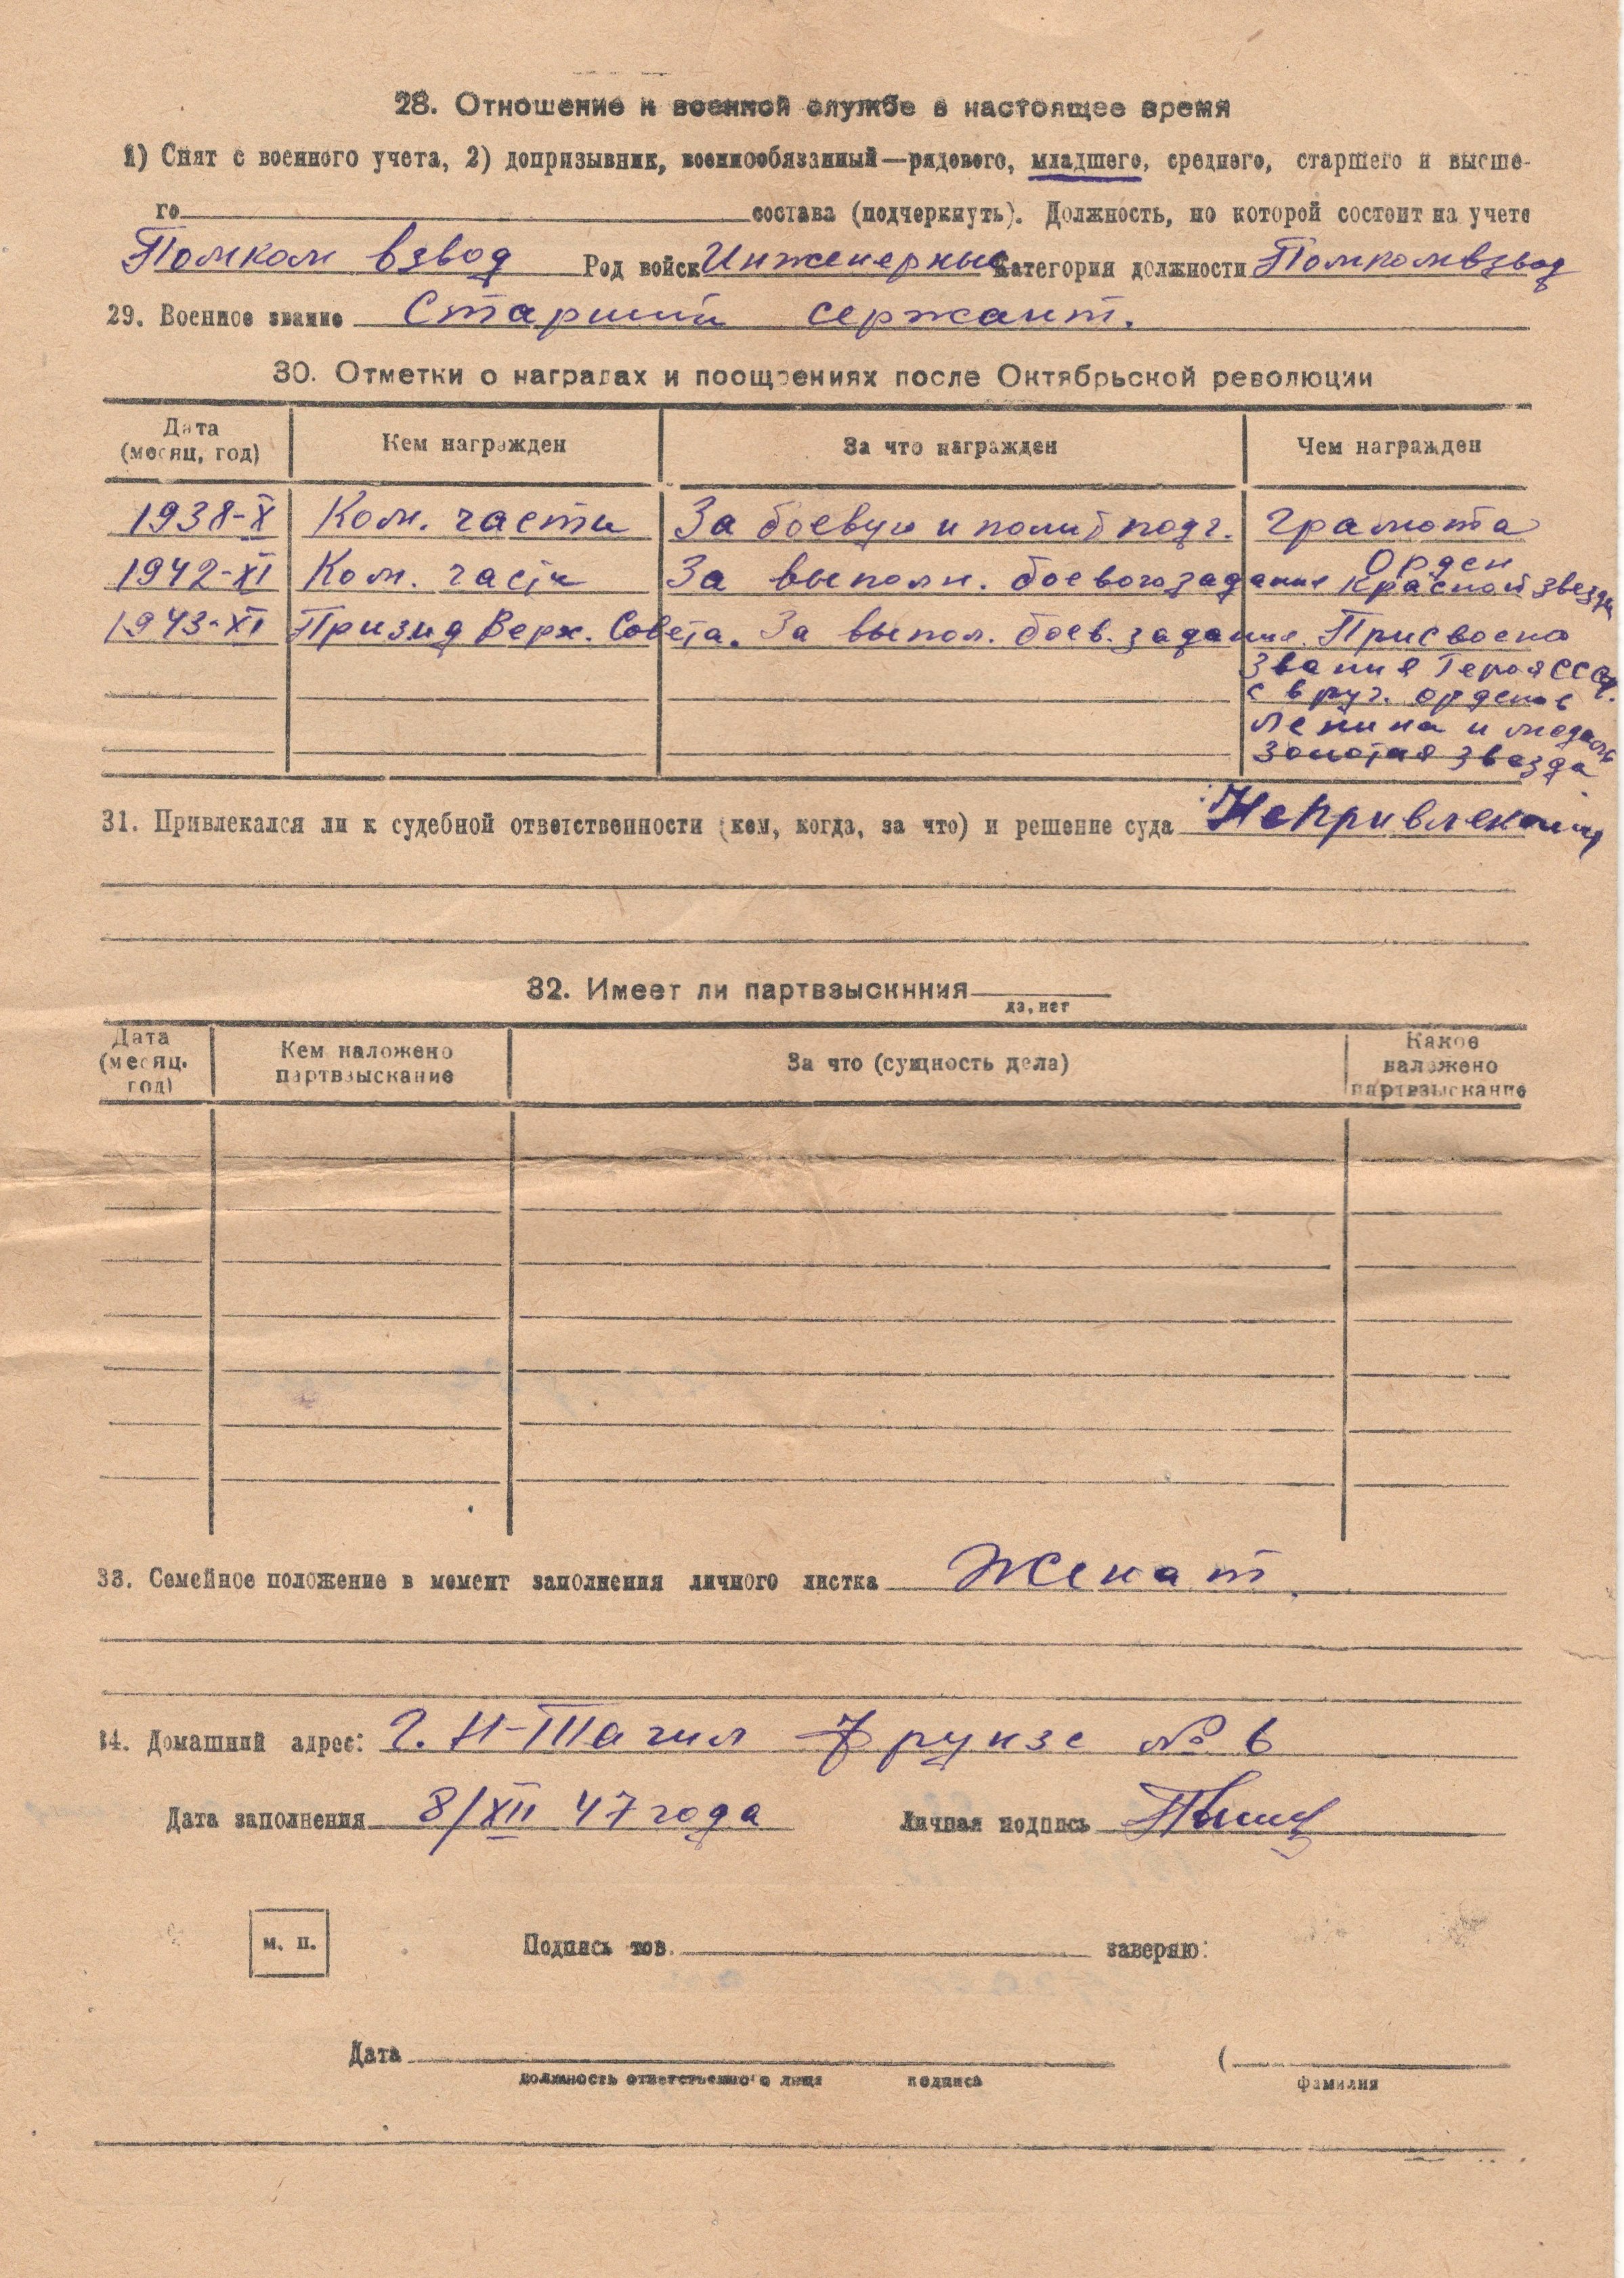 28. Отношение к военной службе в настоящее время
1) Снят с военного учета, 2) допризывник, военнообязанный—рядового, младшего, среднего, старшего и высше-
го состава (подчеркнуть). Должность, по которой состоит на учете
Помком взвод Род войск Инженерные Категория должности Помкомвзвод
29. Военное звание Старший сержант.
30. Отметки о наградах и поощрениях после Октябрьской революции
Дата (месяц, год) Кем награжден За что награжден Чем награжден
1938-X Ком. части За боевую и полит подг. Грамота
1942-XI Ком. части За выполн. боевого задания Орден Красной звезда
1943-XI Призид Верх. Совета. За выпол. боев. задание. Присвоено
Звания Героя СССР.
с вруч. орденов
Ленина и медаль
Золотая звезда
31. Привлекался ли к судебной ответственности (кем, когда, за что) и решение суда Не привлекался
32. Имеет ли партвзыскнния
да, нет
Дата (месяц. год) Кем наложено партвзыскание За что (сущность дела) Какое наложено партвзыскание
33. Семейное положение в момент заполнения личного листка Женат.
14. Домашний адрес: г. Н-Тагил Фрунзе № 6
Дата заполнения 8/XII 47 года Личная подпись
м. п. Подпись тов. заверяю:
Дата (
должность ответственного лица подпись фамилия